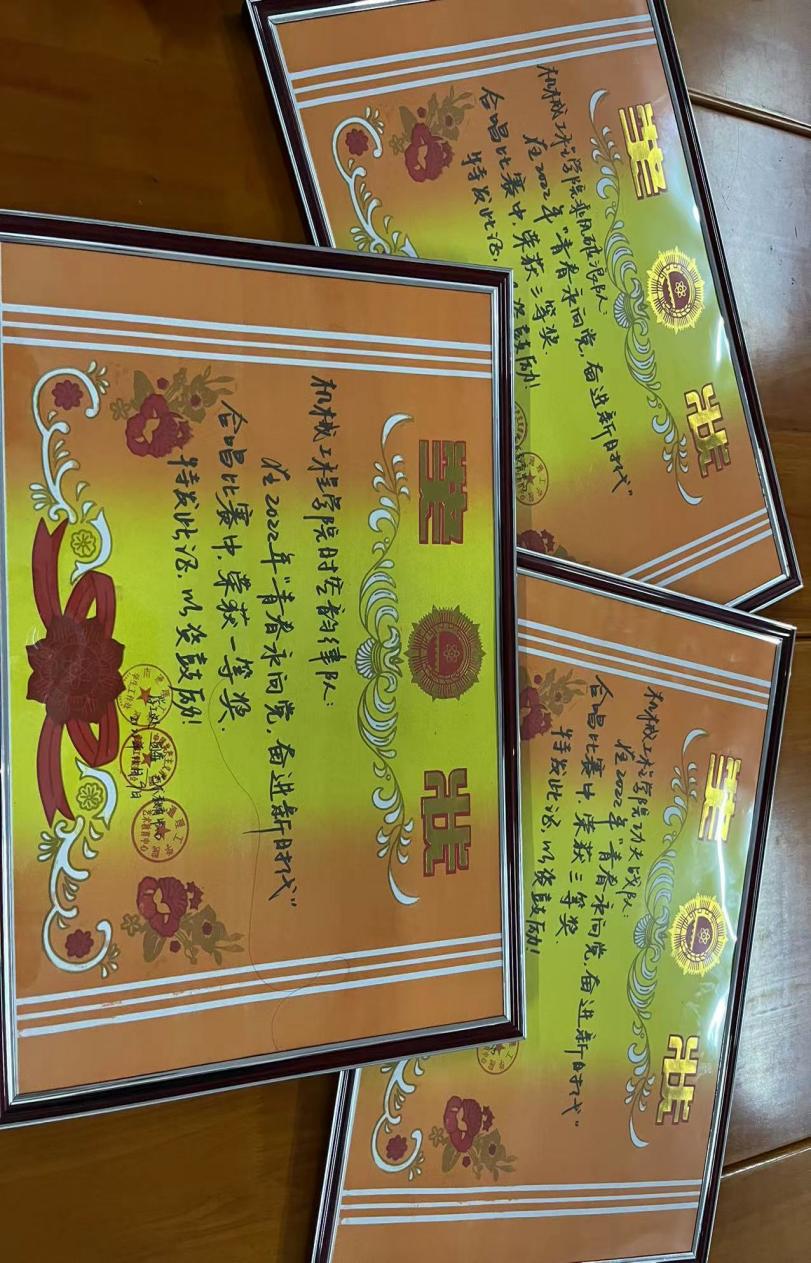 奖状
机械工程学院时空韵律队：
在2022年“青春永向党，奋进新时代”
合唱比赛中，荣获一等奖．
特发此证，以资鼓励！
奖状
机械工程学院乘风破浪队：
在2022年“青春永向党，奋进新时代”
合唱比赛中，荣获三等奖．
特发此证，
资鼓励！
奖状
机械工程学院功夫战队：
在2022年“青春永向党，奋进新时代”
合唱比赛中，荣获三等奖．
特发此证，以资鼓励！